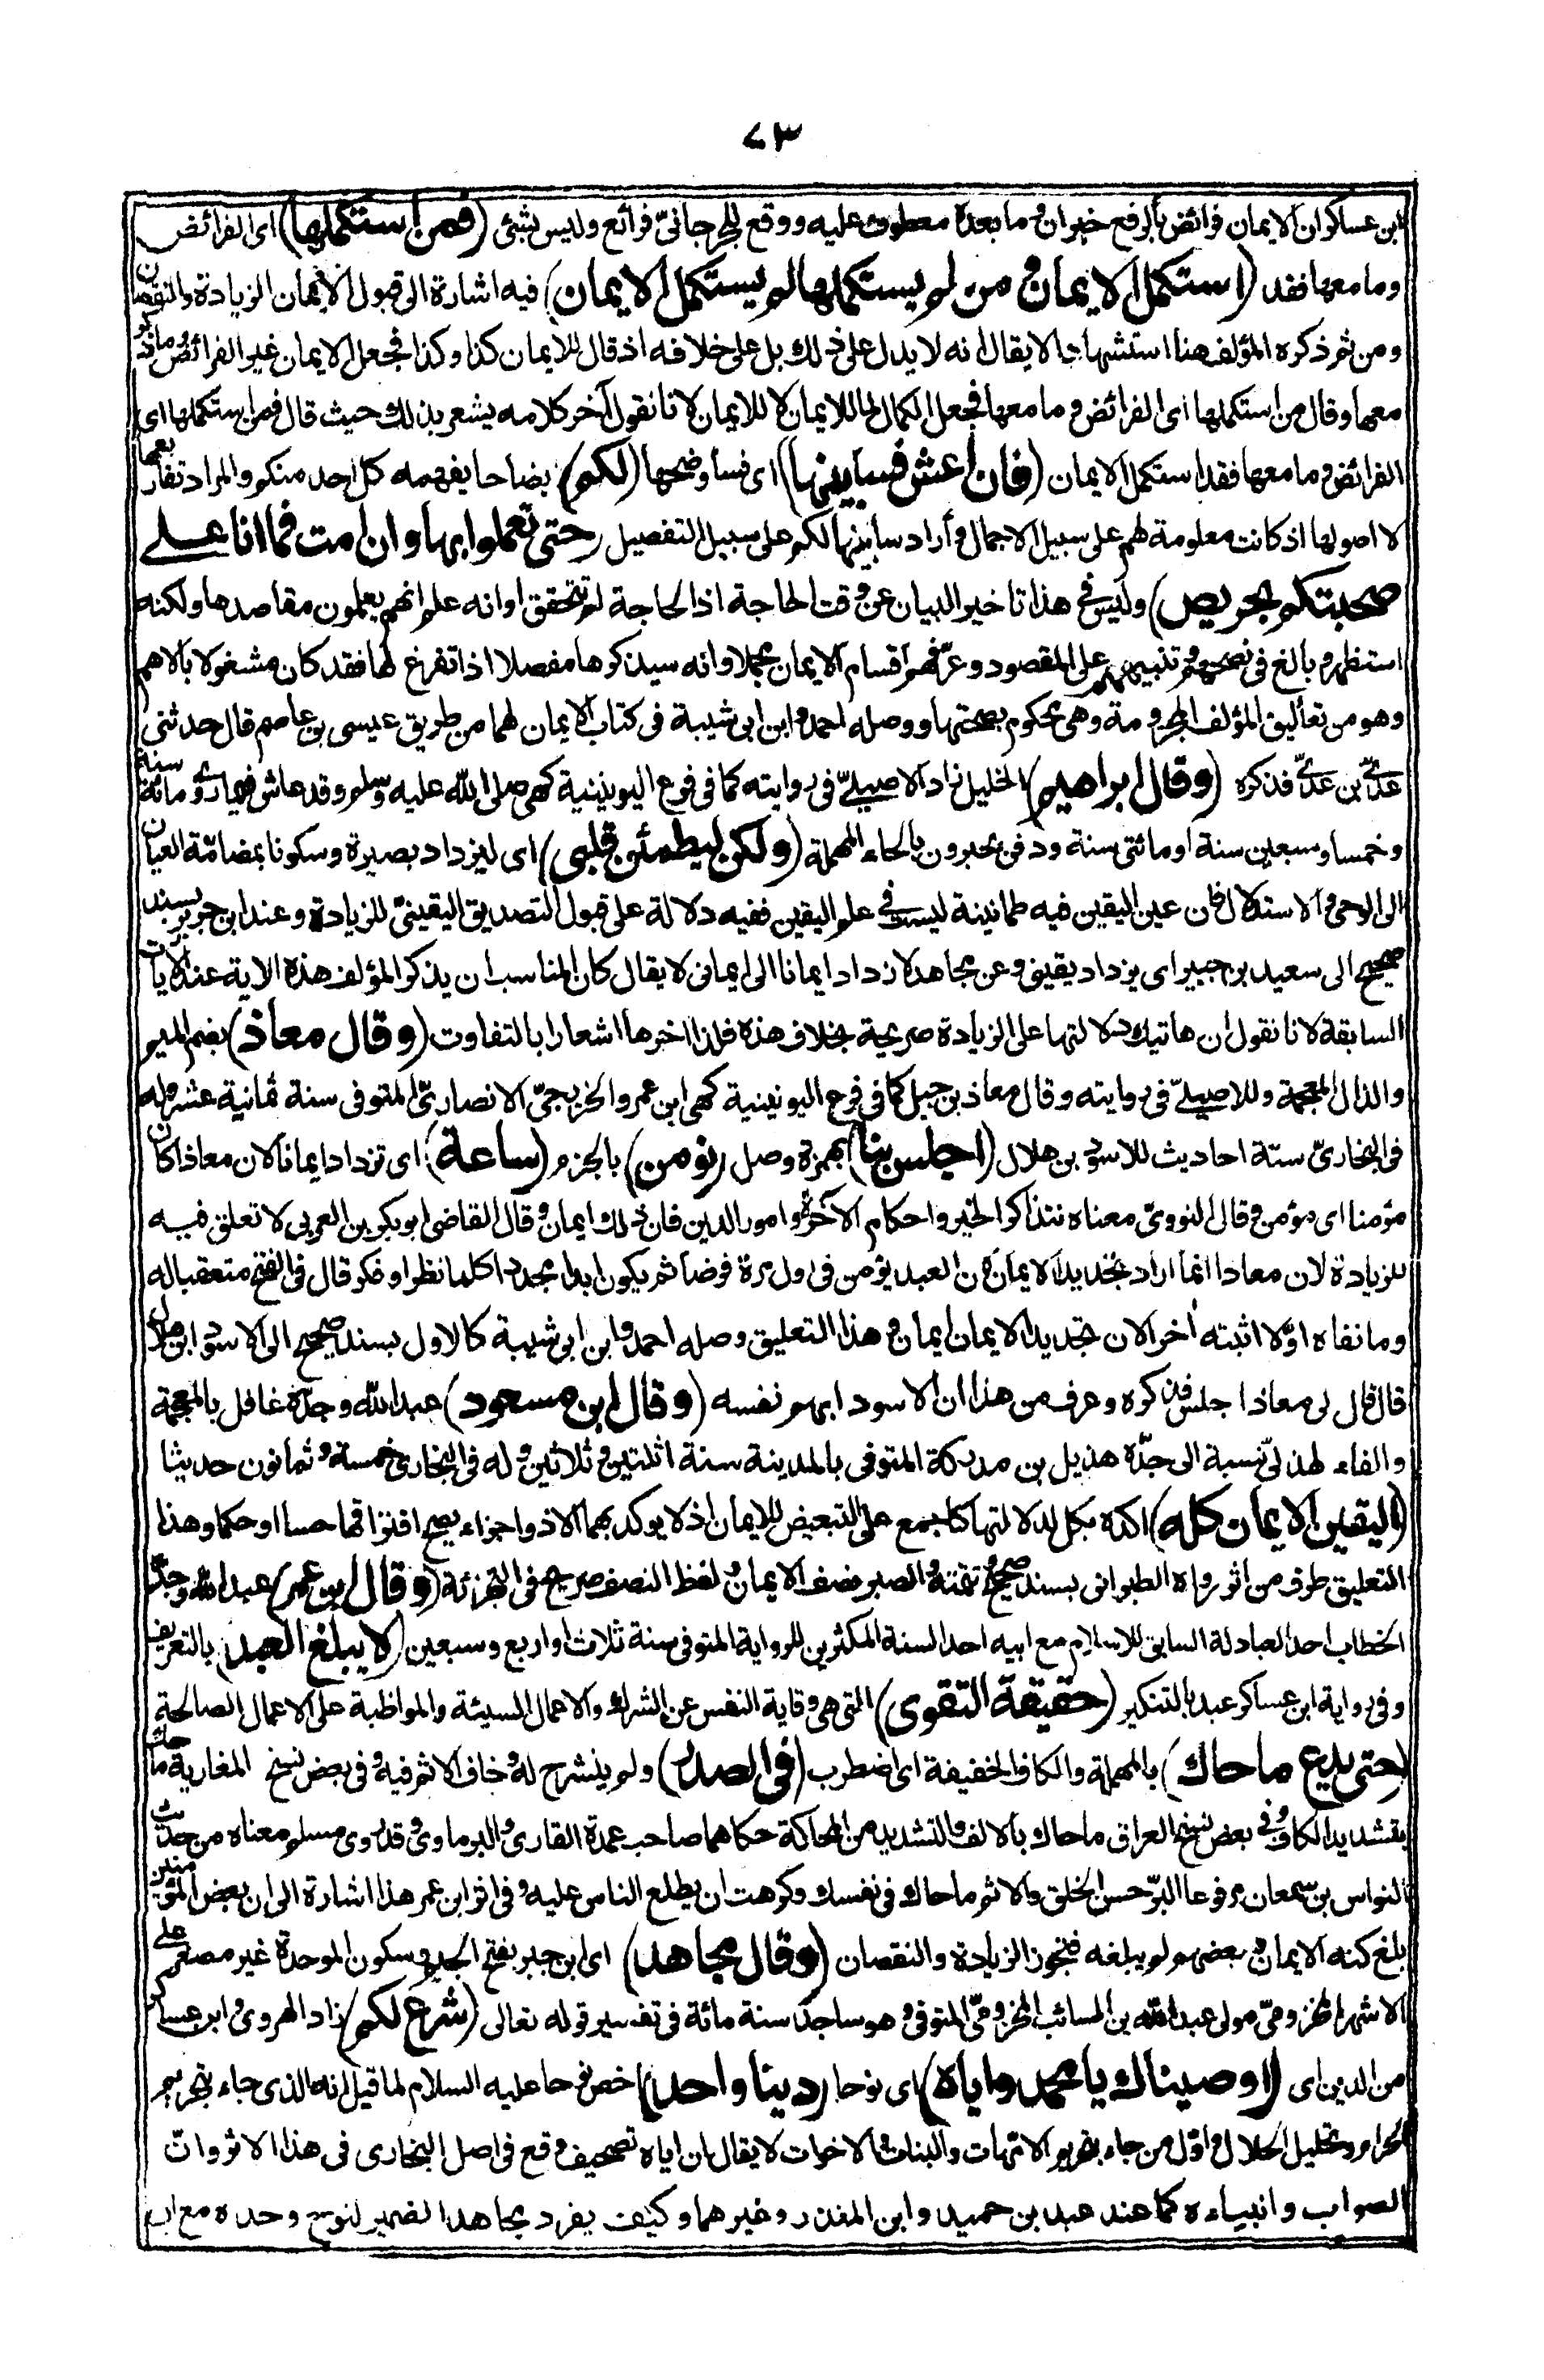 ٧٣
ابن عساكر ان الايمان فرائض بالرفع خبر ان وما بعده معطوف عليه ووقع للجرجانيّ فرائع وليس بشئ (فمن استكملها) اى الفرائض
وما معها فقد (استكمل الايمان ومن لم يستكملها لم يستكمل الايمان) فيه اشارة الى قبول الايمان الزيادة والنقصان
ومن ثم ذكره المؤلف هنا استشهادا لا يقال انه لا يدل على ذلك بل على خلافه اذ قال للايمان كذا وكذا فجعل الايمان غير الفرائض وما ذكر
معها وقال من استكملها اى الفرائض وما معها فجعل الكمال لما للايمان لا للايمان لانا نقول آخر كلامه يشعر بذلك حيث قال فمن استكملها اى
الفرائض وما معها فقد استكمل الايمان (فان اعش فسابينها) اى فساوضحها (لكم) ايضاحا يفهمه كل احد منكم والمراد تفاريعها
لا اصولها اذ كانت معلومة لهم على سبيل الاجمال وأراد سابينها لكم على سبيل التفصيل (حتى تعملوا بها وان امت فما انا على
صحبتكم بحريص) وليس فى هذا تاخير البيان عن وقت الحاجة اذ الحاجة لم تتحقق او انه علم انهم يعلمون مقاصدها ولكنه
استظهر وبالغ فى نصحهم وتنبيههم على المقصود وعرّفهم اقسام الايمان مجملا وانه سيذكرها مفصلا اذا تفرغ لها فقد كان مشغولا بالاهم
وهو من تعاليق المؤلف المجزومة وهى محكوم بصحتها ووصله احمد وابن ابى شيبة فى كتاب الايمان لهما من طريق عيسى بن عاصم قال حدثنى
عدىّ بن عدىّ فذكره (وقال ابراهيم) الخليل زاد الاصيلىّ فى روايته كما فى فرع اليونينية كهى صلى الله عليه وسلم وقد عاش فيما روى مائة سنة
وخمسا وسبعين سنة او مائتى سنة ودفن بحبرون بالحاء المهملة (ولكن ليطمئن قلبى) اى ليزداد بصيرة وسكونا بمضامّة العيان
الى الوحى والاستدلال فان عين اليقين فيه طمانينة ليست فى علم اليقين ففيه دلالة على قبول التصديق اليقينىّ للزيادة وعند ابن جرير بسند
صحيح الى سعيد بن جبير اى يزداد يقينى وعن مجاهد لازداد ايمانا الى ايمانى لا يقال كان المناسب ان يذكر المؤلف هذه الاية عند الآيات
السابقة لانا نقول ان هاتيك دلالتها على الزيادة صريحة بخلاف هذه فلذا اخرها اشعارا بالتفاوت (وقال معاذ) بضم الميم
والذال المعجمة وللاصيلىّ فى روايته وقال معاذ بن جبل كما فى فرع اليونينية كهى ابن عمرو الخزرجىّ الانصارىّ المتوفى سنة ثمانية عشر وله
فى البخارىّ ستّة احاديث للاسود بن هلال (اجلس بنا) بهمزة وصل (نومن) بالجزم (ساعة) اى نزداد ايمانا لان معاذا كان
مؤمنا اى مؤمن وقال النووىّ معناه نتذاكر الخير واحكام الآخرة وامور الدين فان ذلك ايمان وقال القاضى ابو بكر بن العربى لا تعلق فيه
للزيادة لان معاذا انما اراد تجديد الايمان لان العبد يؤمن فى اول مرة فرضا ثم يكون ابدا مجددا كلما نظر او فكر قال فى الفتح متعقبا له
وما نفاه اوّلا اثبته آخرا لان تجديد الايمان ايمان وهذا التعليق وصله احمد وابن ابى شيبة كالاول بسند صحيح الى الاسود ابن هلال
قال قال لى معاذ اجلس فذكره وعرف من هذا ان الاسود ابهم نفسه (وقال ابن مسعود) عبد الله وجدّه غافل بالمعجمة
والفاء الهذلىّ نسبة الى جدّه هذيل بن مدركة المتوفى بالمدينة سنة اثنتين وثلاثين وله فى البخارى خمسة وثمانون حديثا
(اليقين الايمان كله) اكده بكل لدلالتها كاجمع على التبعيض للايمان اذ لا يوكد بهما الا ذو اجزاء يصح افتراقها حسا او حكما وهذا
التعليق طرف من اثر رواه الطبرانى بسند صحيح وتمته والصبر نصف الايمان ولفظ النصف صريح فى التجزئة (وقال ابن عمر) عبد الله وجدّه
الخطاب احد العبادلة السابق للاسلام مع ابيه احد الستة المكثرين للرواية المتوفى سنة ثلاث او اربع وسبعين (لا يبلغ العبد) بالتعريف
وفى رواية ابن عساكر عبد بالتنكير (حقيقة التقوى) التى هى وقاية النفس عن الشرك والاعمال السيئة والمواظبة على الاعمال الصالحة
(حتى يدع ما حاك) بالمهملة والكاف الخفيفة اى اضطرب (فى الصدر) ولم ينشرح له وخاف الاثم فيه وفى بعض نسخ المغاربة ما حك
بتشديد الكاف وفى بعض نسخ العراق ما حاك بالالف والتشديد من المحاكة حكاهما صاحب عمدة القارى والبرماوى وقد روى مسلم معناه من حديث
النواس بن سمعان مرفوعا البرّ حسن الخلق والاثم ما حاك فى نفسك وكرهت ان يطلع الناس عليه وفى اثر ابن عمر هذا اشارة الى ان بعض المؤمنين
بلغ كنه الايمان وبعضهم لم يبلغه فتجوز الزيادة والنقصان (وقال مجاهد) اى ابن جبر بفتح الجيم وسكون الموحدة غير مصغر على
الاشهر المخزومىّ مولى عبد الله بن السائب المخزومىّ المتوفى وهو ساجد سنة مائة فى تفسير قوله تعالى (شرع لكم) زاد الهروى وابن عساكر
من الدين اى (اوصيناك يا محمد واياه) اى نوحا (دينا واحدا) خص نوحا عليه السلام لما قيل انه الذى جاء بتحريم
الحرام وتحليل الحلال واوّل من جاء بتحريم الامّهات والبنات والاخوات لا يقال ان اياه تصحيف وقع فى اصل البخارى فى هذا الاثر وانّ
الصواب وانبياءه كما عند عبد بن حميد وابن المنذر وغيرهما وكيف يفرد مجاهد الضمير لنوح وحده مع ان